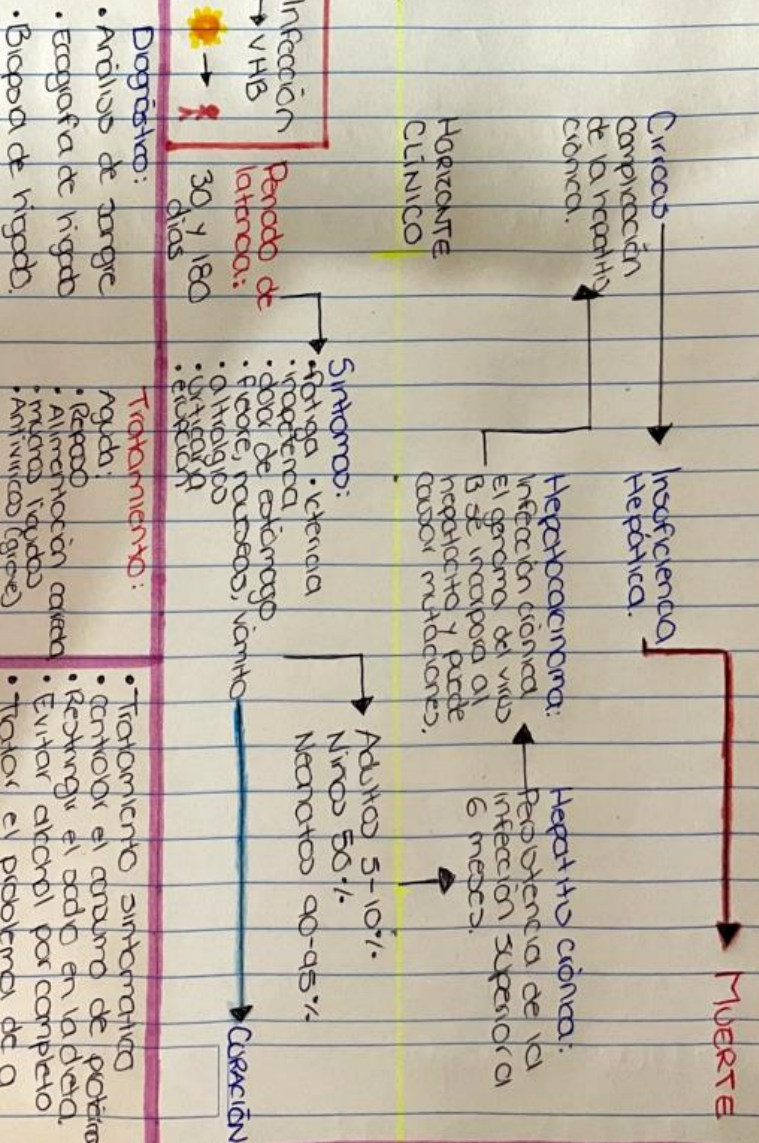 MUERTE
Cirrosis
complicación
de la hepatitis
crónica.
Insuficiencia
Hepática.
Hepatocarcinoma:
infección crónica
El genoma del virus
B se incorpora al
hepatocito y puede
causar mutaciones.
Hepatitis crónica:
Persistencia de la
infección superior a
6 meses.
HORIZONTE
CLÍNICO
Infección
→ VHB
Periodo de
latencia:
30 y 180
días
Síntomas:
• fatiga • ictericia
• inapetencia
• dolor de estómago
• fiebre, nauseas, vómito
• altralgias
• urticaria
• erupción
Adultos 5-10%
Niños 50%
Neonatos 90-95%
CURACIÓN
Diagnóstico:
• Análisis de sangre
• Ecografía de hígado
• Biopsia de hígado.
Tratamiento:
Aguda:
• Reposo
• Alimentación correcta
• muchos líquidos
• Antivíricos (graves)
• Tratamiento sintomático
• controlar el consumo de proteína
• Restringir el sodio en la dieta.
• Evitar alcohol por completo
• Tratar el problema de a